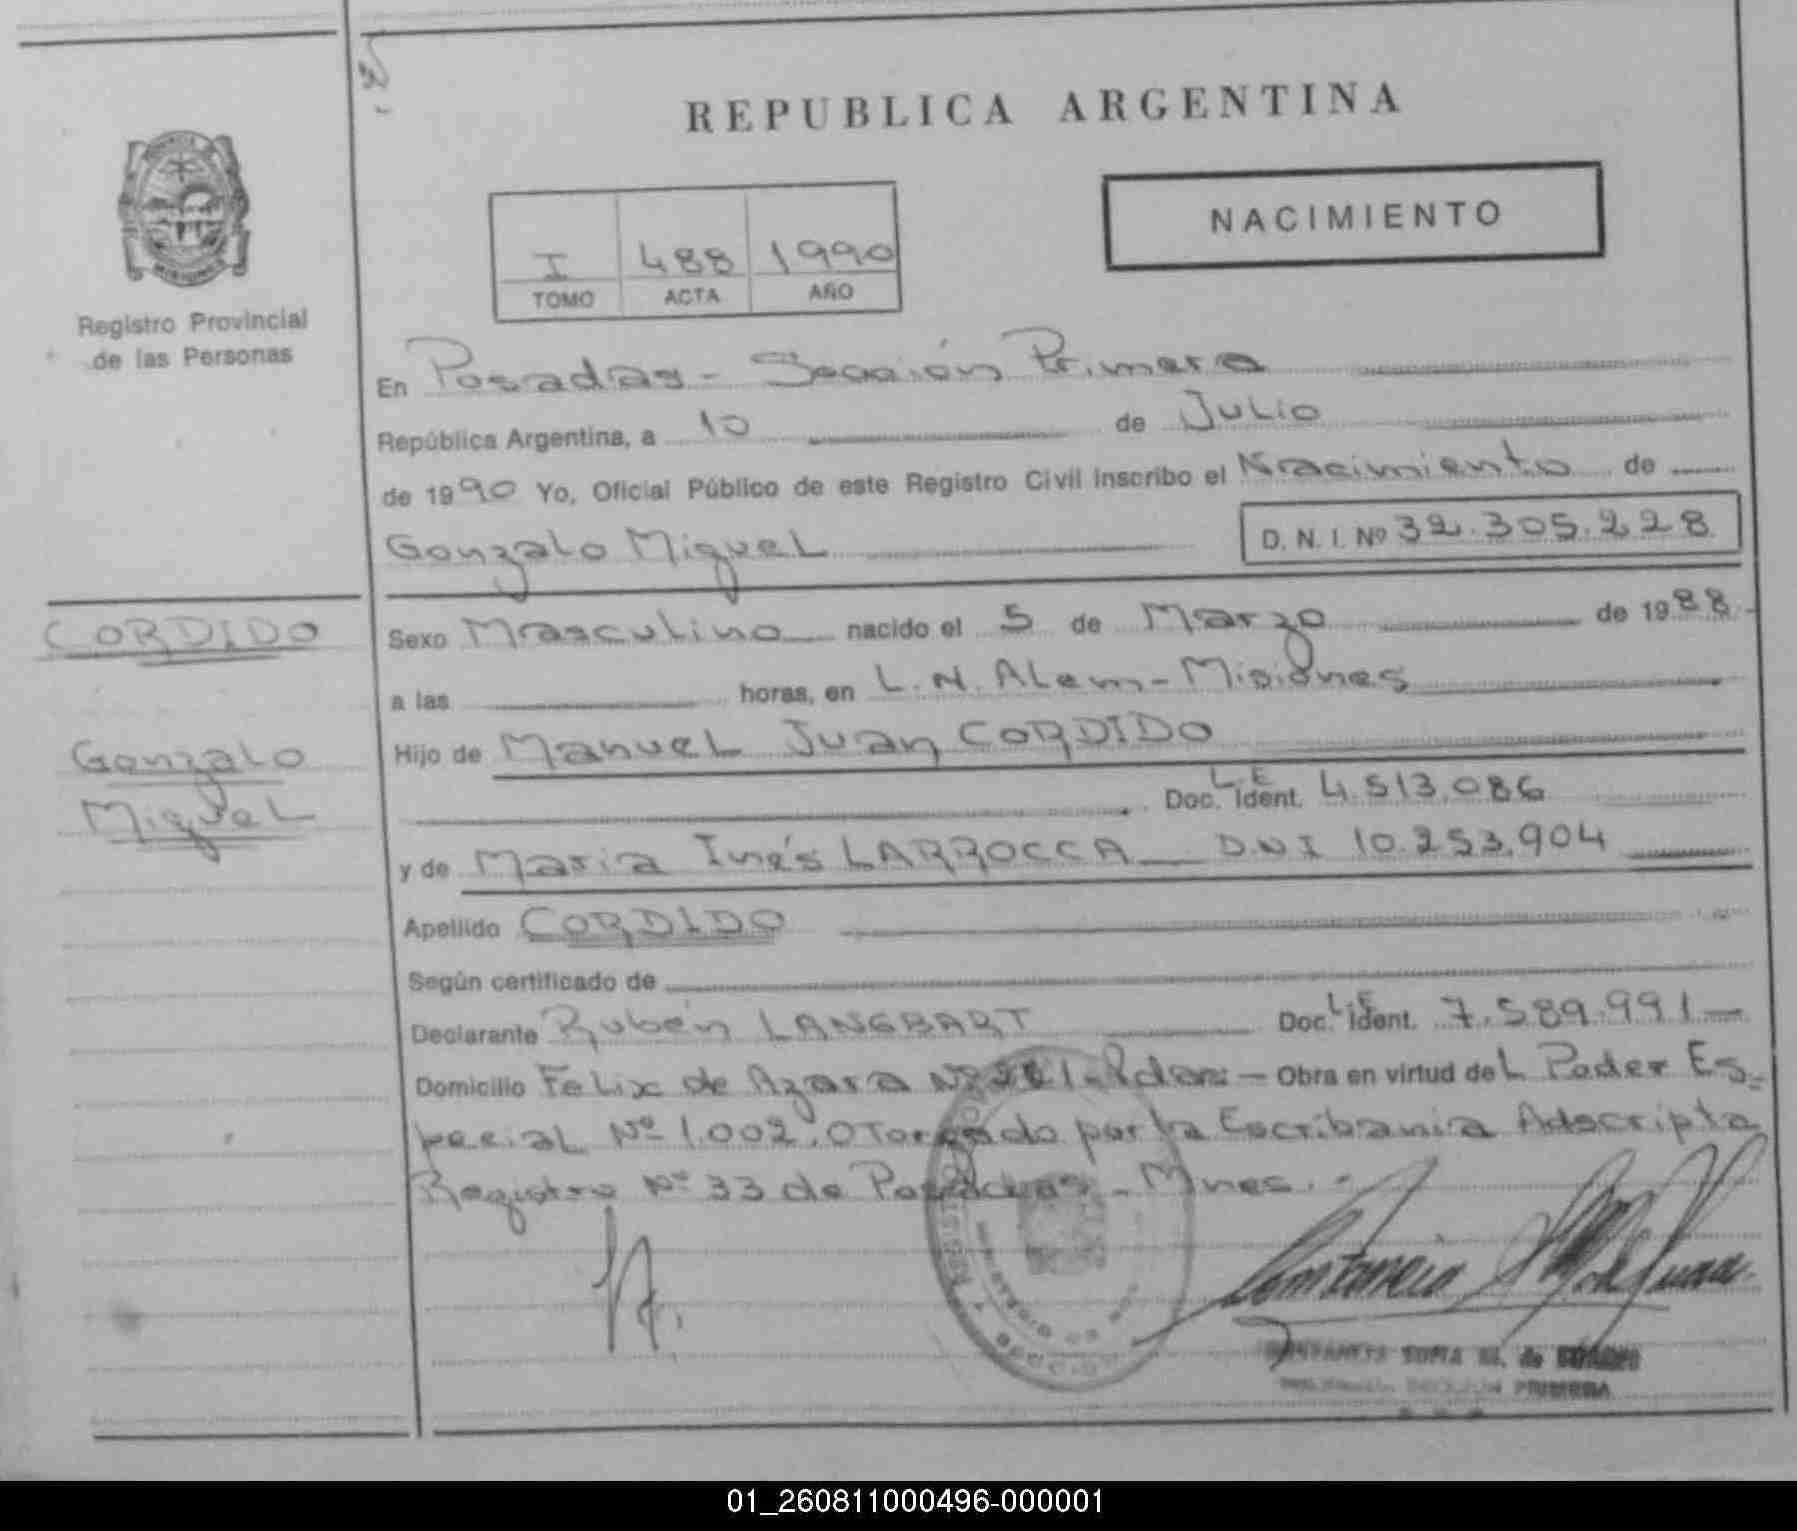 REPUBLICA ARGENTINA
NACIMIENTO
I 488 1990
TOMO ACTA AÑO
Registro Provincial
de las Personas
En Posadas - Sección Primera
República Argentina, a 10 de Julio
de 1990 Yo, Oficial Público de este Registro Civil inscribo el Nacimiento de
Gonzalo Miguel D. N. I. Nº 32.305.228
CORDIDO
Gonzalo
Miguel
Sexo Masculino nacido el 5 de Marzo de 1988
a las horas, en L. N. Alem - Misiones
Hijo de Manuel Juan CORDIDO
Doc. Ident. L.E 4.513.086
y de Maria Inés LARROCCA D.N.I 10.253.904
Apellido CORDIDO
Según certificado de
Declarante Rubén LANGBART Doc. Ident. L.E 7.589.991
Domicilio Felix de Azara Nº - Pdas - Obra en virtud deL Poder Es-
peciaL Nº 1.002. Otorgado por la Escribania Adscripta
Registro Nº 33 de Posadas - Mnes. -
SOFIA M. de
PRIMERA
01_260811000496-000001